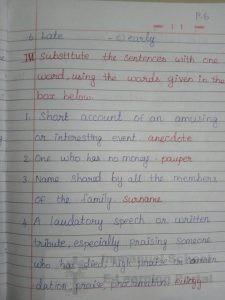 P.6
6. Late - early
IV Substitute the sentences with one
word, using the words given in the
box below.
1. Short account of an amusing
or interesting event. anecdote
2. One who has no money. pauper
3. Name shared by all the members
of the family. surname
4. A laudatory speech or written
tribute, especially praising someone
who has died, high praise or commen
dation, praise, proclamation. Eulogy